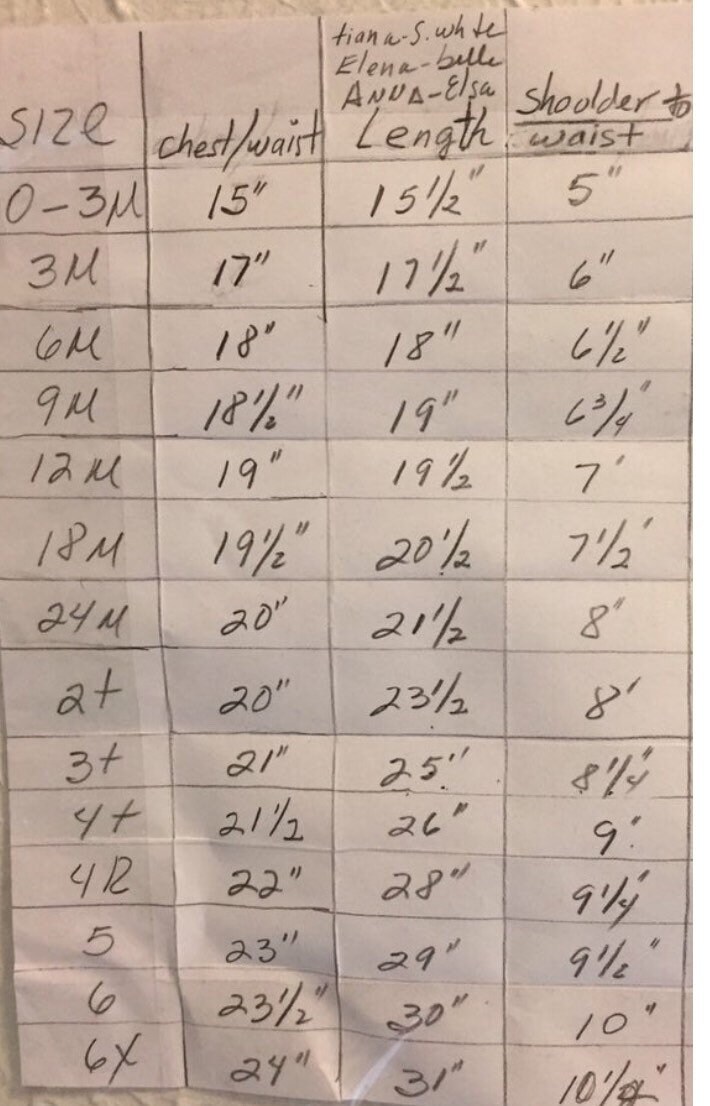 tiana-S.white
Elena-belle
ANNA-Elsa
Size chest/waist Length Shoolder to waist
0-3M 15" 15 1/2" 5"
3M 17" 17 1/2" 6"
6M 18" 18" 6 1/2"
9M 18 1/2" 19" 6 3/4"
12M 19" 19 1/2 7'
18M 19 1/2" 20 1/2 7 1/2'
24M 20" 21 1/2 8"
2t 20" 23 1/2 8'
3t 21" 25" 8 1/4"
4t 21 1/2 26" 9"
4R 22" 28" 9 1/4"
5 23" 29" 9 1/2"
6 23 1/2" 30" 10"
6X 24" 31"